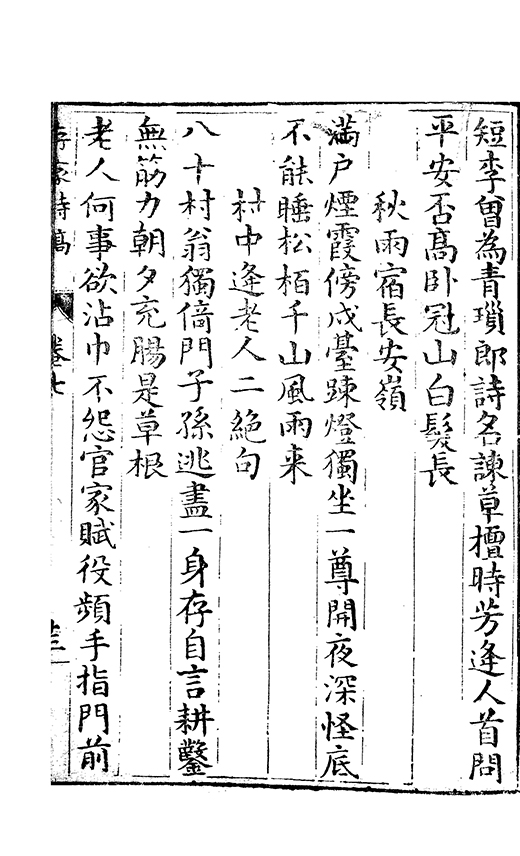 短李曽為青瑣郎詩名諫草擅時芳逢人首問
平安否髙卧冠山白髮長
秋雨宿長安嶺
滿户煙霞傍戍臺踈燈獨坐一尊開夜深怪底
不能睡松栢千山風雨来
村中逢老人二絶句
八十村翁獨倚門子孫逃盡一身存自言耕鑿
無筋力朝夕充腸是草根
老人何事欲沾巾不怨官家賦役頻手指門前
詩髙
卷七